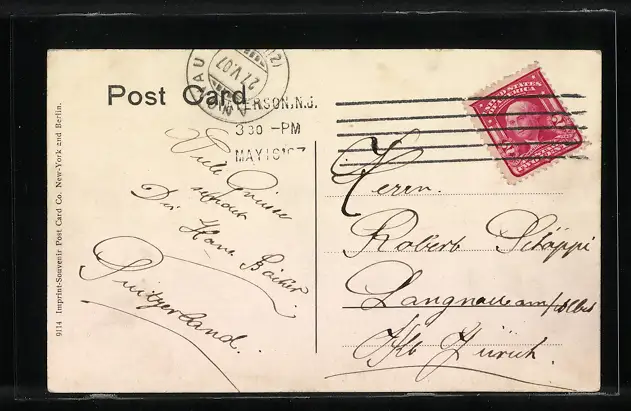 Post Card
NAU
27.V.07
ERSON, N.J.
3 30 -PM
MAY 16 '07
UNITED STATES
OF AMERICA
Viele Grüsse
sendet
Dir Hans
Switzerland.
Herrn.
Robert Stäppi
Langnau am/Albis
Kt. Zürich.
9114 Imprint-Souvenir Post Card Co. New-York and Berlin.